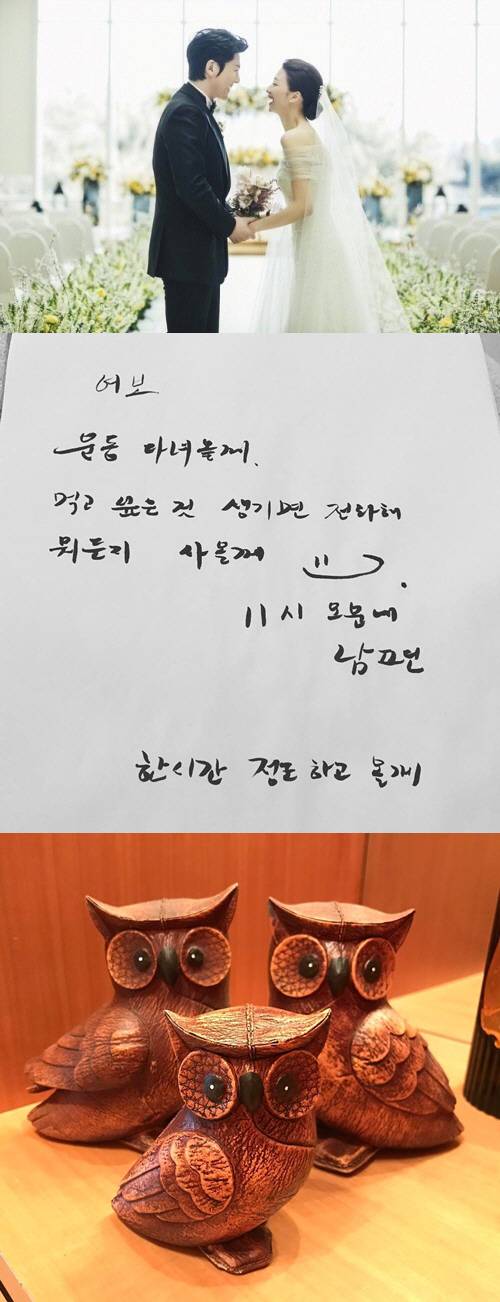 여보
운동 다녀올게.
먹고 싶은 것 생기면 전화해
뭐든지 사올게
11시 오분에
남편
한시간 정도 하고 올게